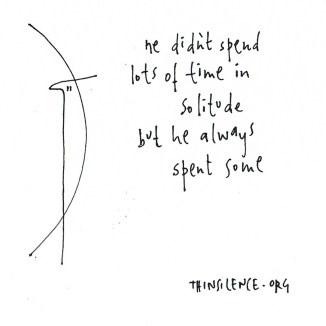 he didn't spend
lots of time in
solitude
but he always
spent some
THINSILENCE.ORG